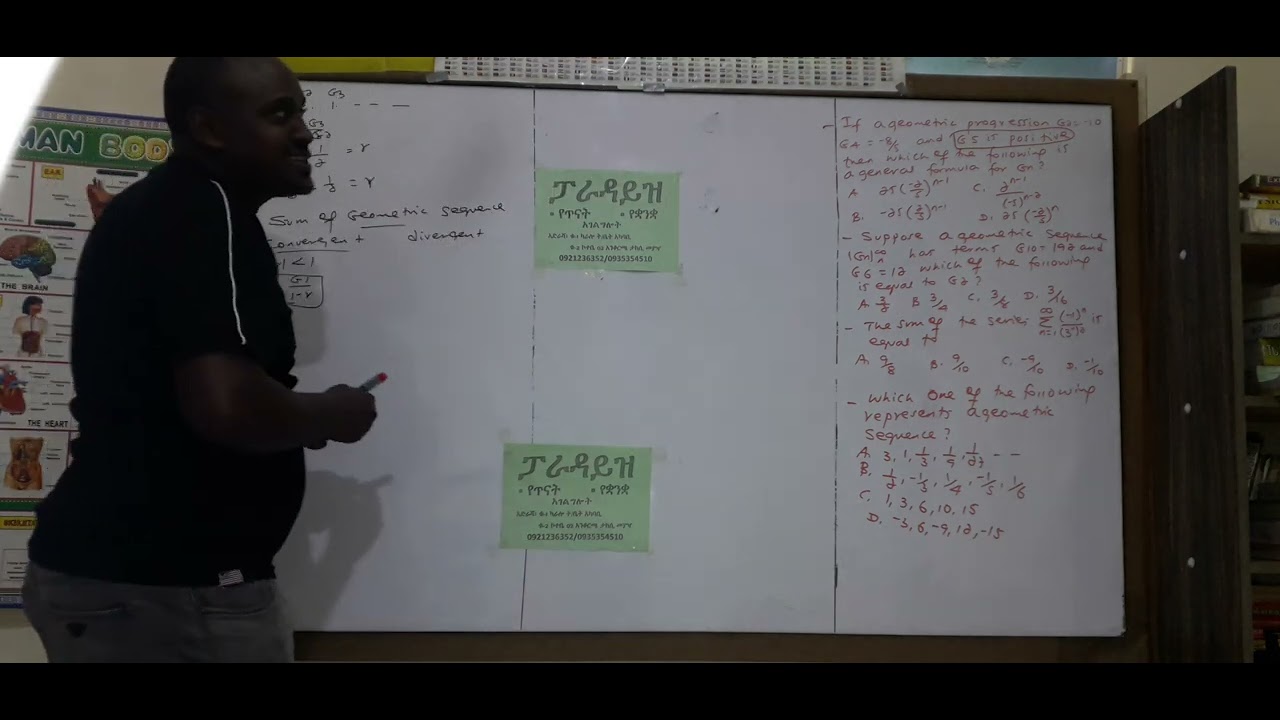 MAN BODY
EAR
THE BRAIN
THE HEART
G3
1 - - —
G3
G2
1/2 = r
1/3 = r
Sum of Geometric sequence
convergent divergent
< 1
G1
1-r
ፓራዳይዝ
• የጥናት • የቋንቋ
አገልግሎት
0921236352/0935354510
ፓራዳይዝ
• የጥናት • የቋንቋ
አገልግሎት
0921236352/0935354510
- If a geometric progression G2 = -10
G4 = -8/5 and G5 is positive
then which of the following is
a general formula for Gn?
A 25(-2/5)^n-1 C. 2^n-1/(-5)^n-2
B. -25(2/5)^n-1 D. 25(-2/5)^n
- Suppose a geometric sequence
{Gn}∞n has terms G10 = 192 and
G6 = 12 which of the following
is equal to G2?
A. 3/2 B 3/4 C. 3/8 D. 3/16
- The sum of the series ∞∑n=1 (-1)^n/(3^n)^2 is
equal to
A. 9/8 B. 9/10 C. -9/10 D. -1/10
- which one of the following
represents a geometric
sequence?
A. 3, 1, 1/3, 1/9, 1/27 - -
B. 1/2, -1/3, 1/4, -1/5, 1/6
C. 1, 3, 6, 10, 15
D. -3, 6, -9, 12, -15